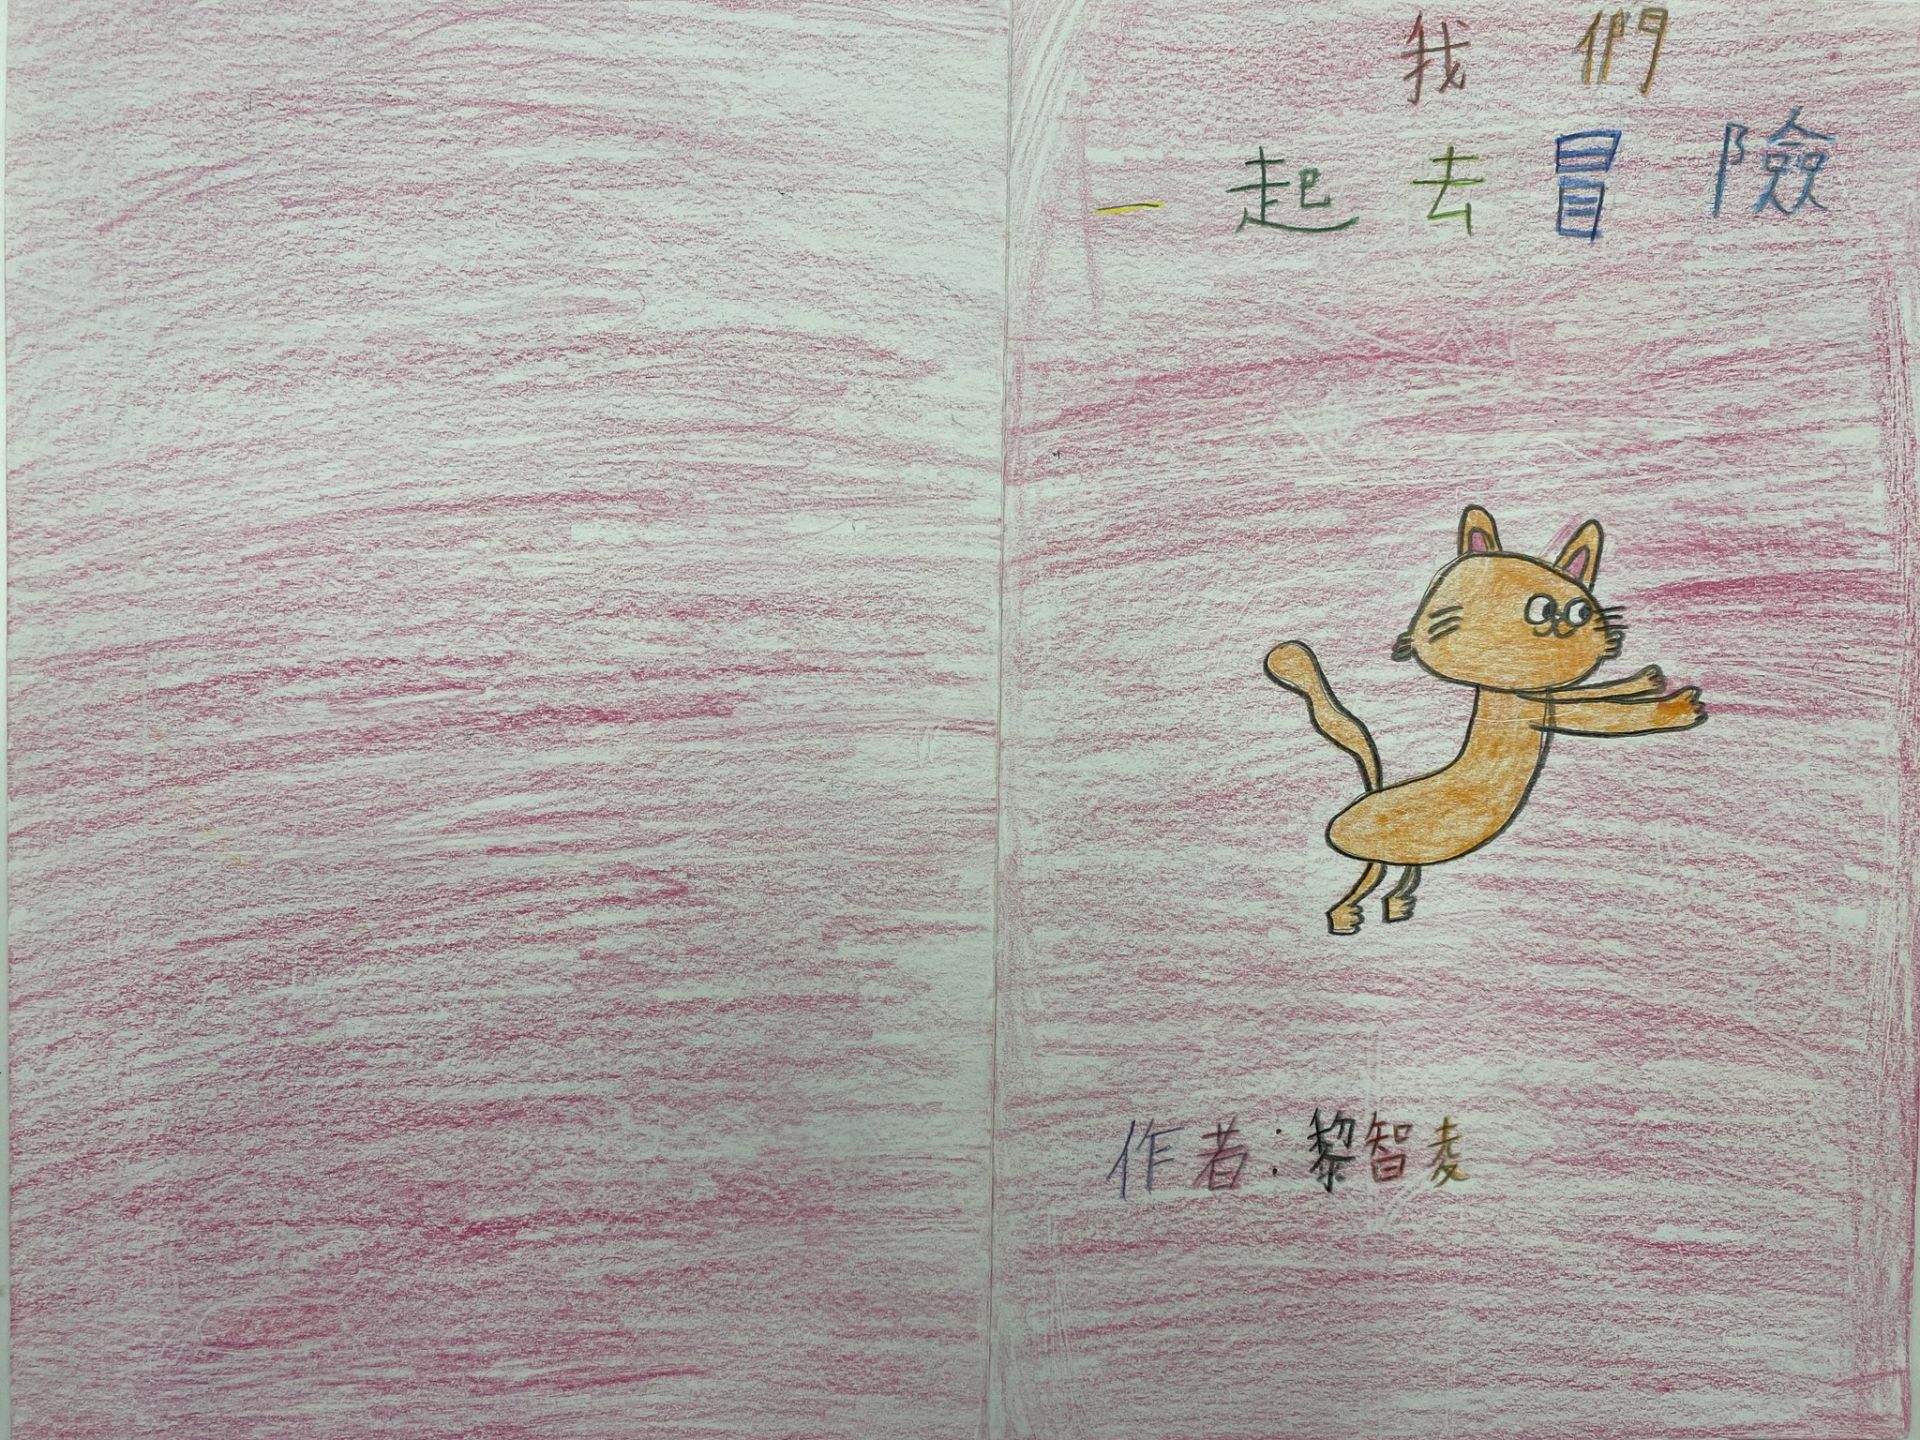 我們
一起去冒險
作者：黎智夌